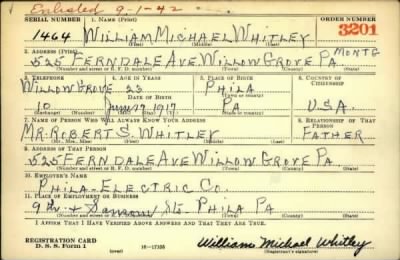 Enlisted 9-1-42
SERIAL NUMBER 1. NAME (Print) ORDER NUMBER
1464 WILLIAM MICHAEL WHITLEY 3201
(First) (Middle) (Last)
2. ADDRESS (Print) MONTG
525 FERNDALE AVE WILLOW GROVE PA
(Number and street or R. F. D. number) (Town) (County) (State)
3. TELEPHONE 4. AGE IN YEARS 5. PLACE OF BIRTH 6. COUNTRY OF CITIZENSHIP
WILLOW GROVE 23 PHILA
DATE OF BIRTH (Town or county)
10 June 17 1917 PA U.S.A.
(Mo.) (Day) (Yr.) (State or country)
7. NAME OF PERSON WHO WILL ALWAYS KNOW YOUR ADDRESS 8. RELATIONSHIP OF THAT PERSON
MR. ROBERT S. WHITLEY FATHER
(Mr., Mrs., Miss) (First) (Middle) (Last)
9. ADDRESS OF THAT PERSON
525 FERNDALE AVE WILLOW GROVE PA
(Number and street or R. F. D. number) (Town) (County) (State)
10. EMPLOYER'S NAME
PHILA-ELECTRIC CO.
11. PLACE OF EMPLOYMENT OR BUSINESS
9th & Sansom Sts. PHILA PA
(Number and street or R. F. D. number) (Town) (County) (State)
I AFFIRM THAT I HAVE VERIFIED ABOVE ANSWERS AND THAT THEY ARE TRUE.
REGISTRATION CARD
D. S. S. Form 1 (over) 16-17105 William Michael Whitley
(Registrant's signature)